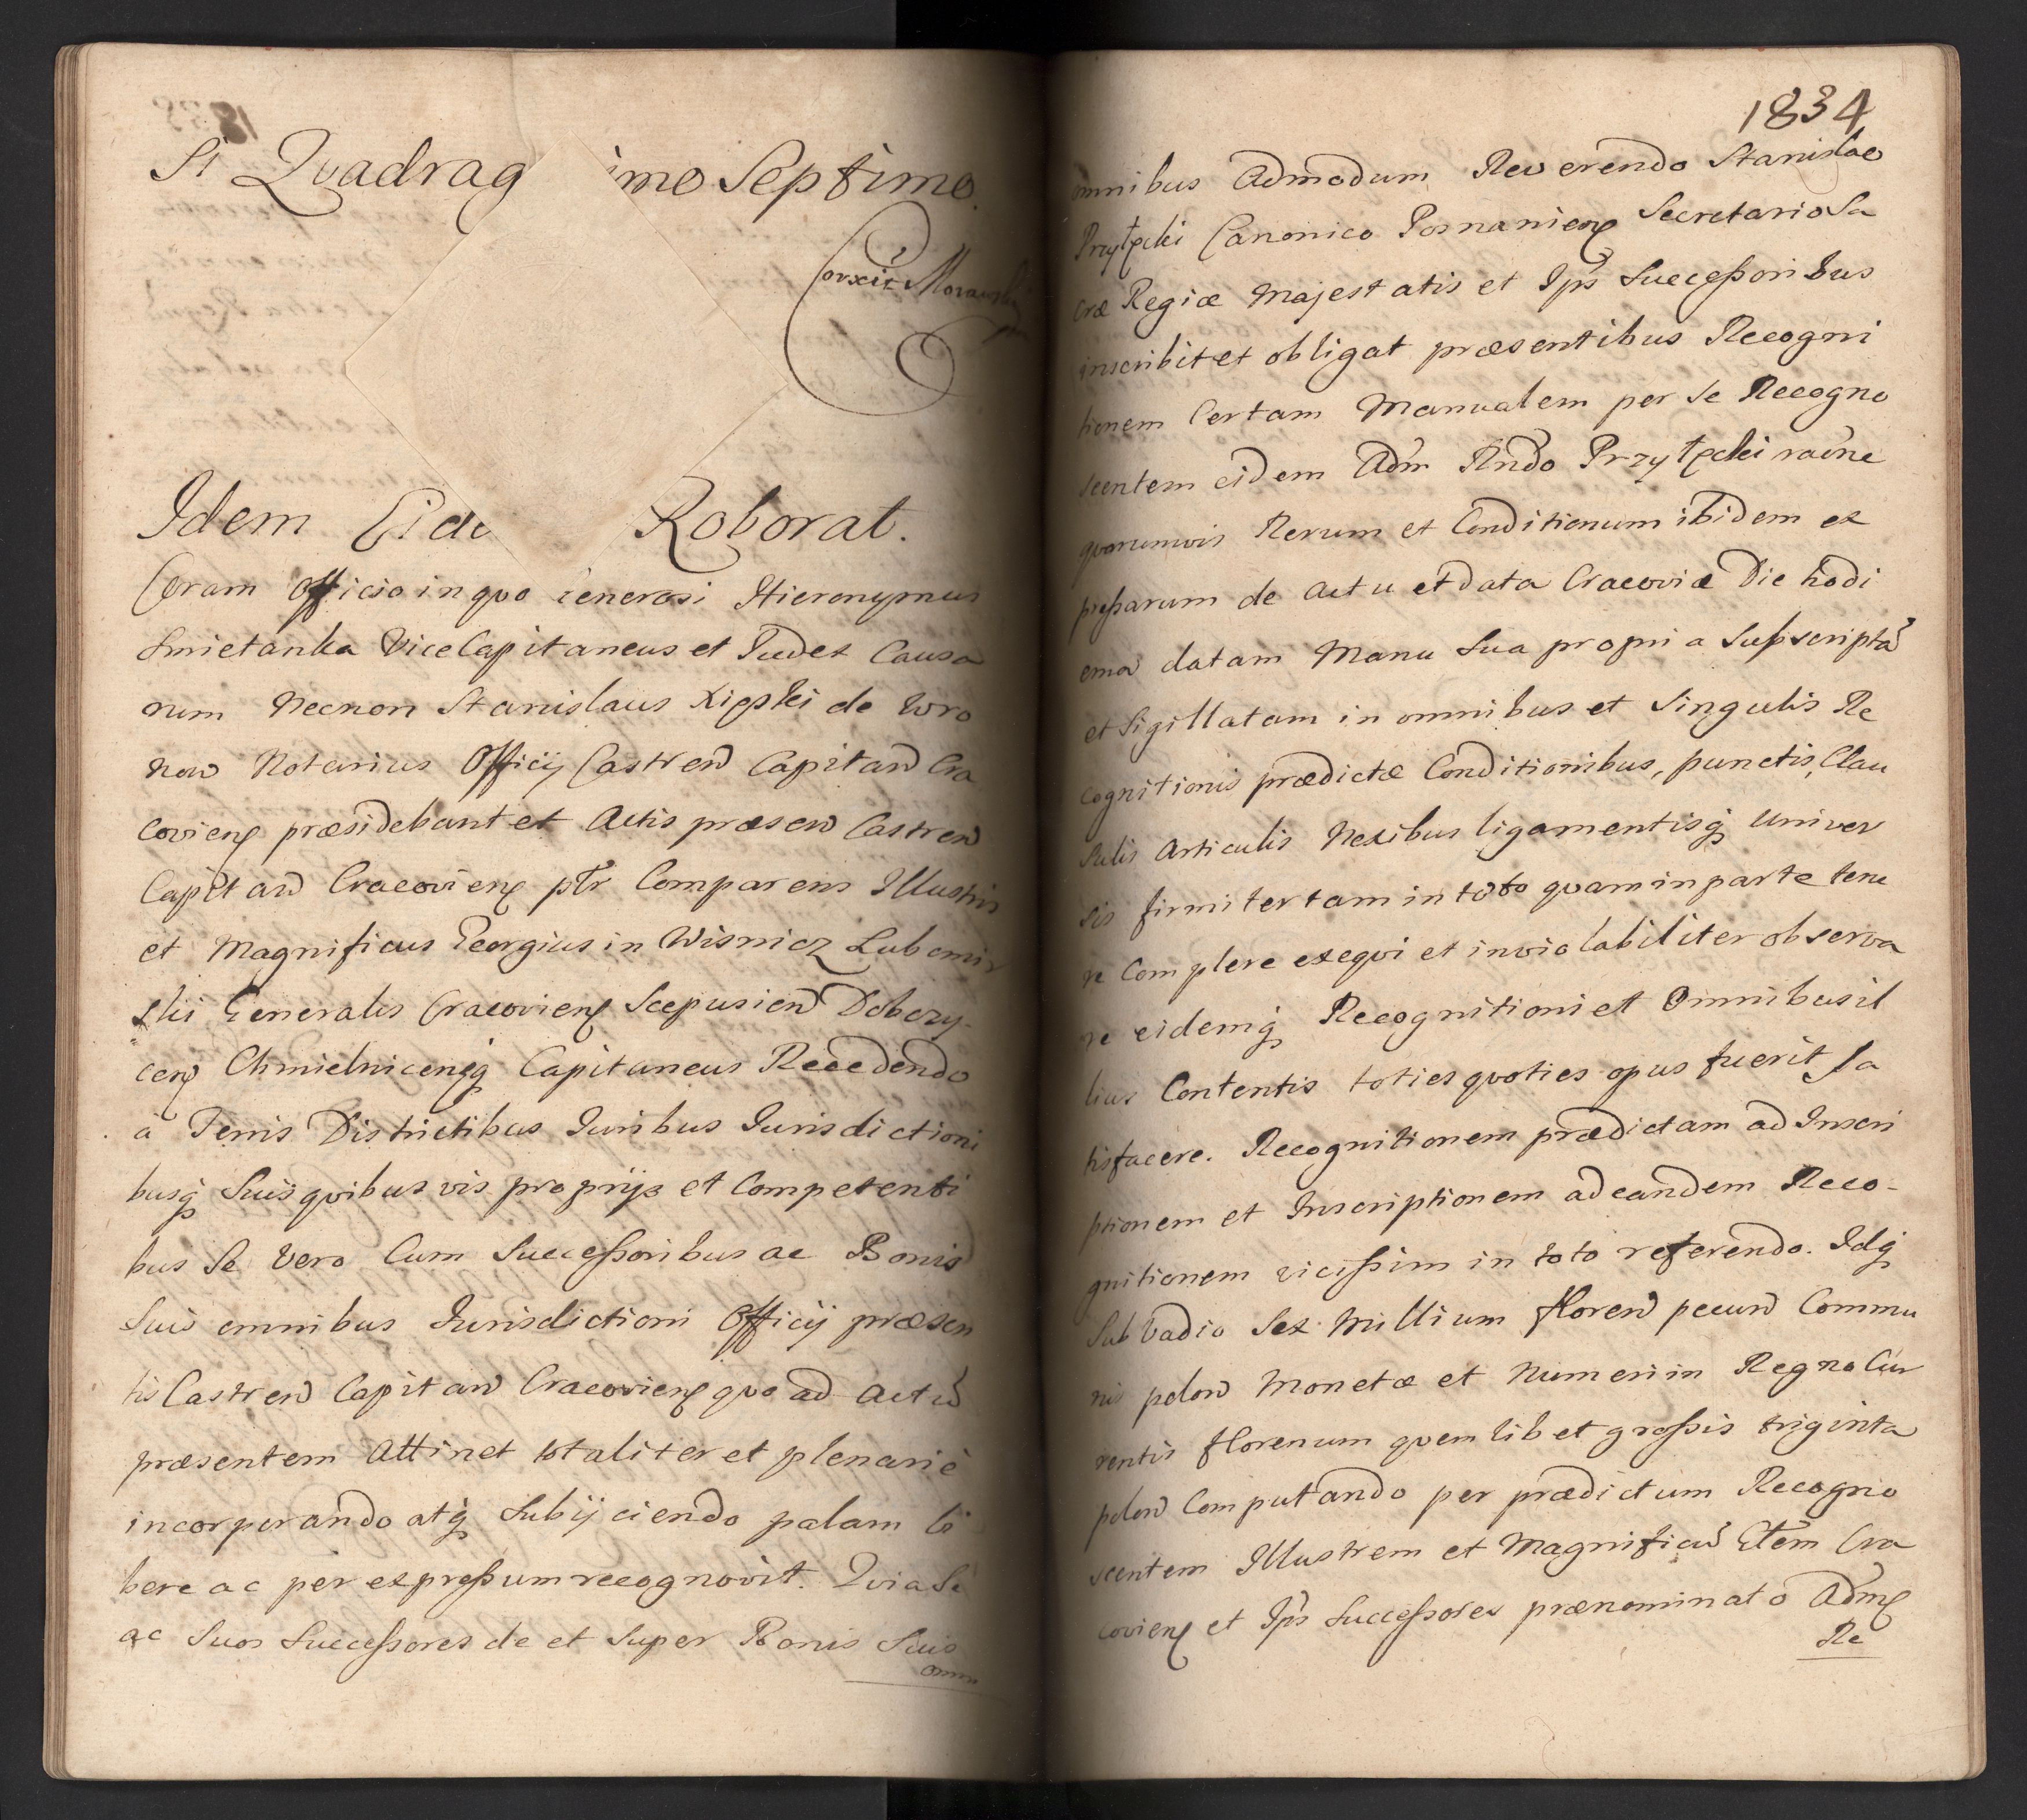 Si Quadrag imo Septimo.
Corxit Morawski
Idem Eide Roborat.
Coram Officio in quo Generosi Hieronymus
Smietanka ViceCapitaneus et Judex Causa
rum Necnon Stanislaus Kiępski de Wro
now Notarius Officij Castren Capitan Cra
covien præsidebant et Actis præsen Castren
Capitan Cracovien ptr Comparens Illustris
et Magnificus Georgius in Wisnicz Lubomir
skii Generalis Cracovien Scepusien Dobczy-
cen Chmielnicenq Capitaneus Recedendo
a Terris Districtibus Juribus Jurisdictioni
busq Suis quibusvis proprijs et Competenti
bus Se vero Cum Successoribus ac Bonis
Suis omnibus Jurisdictioni Officij præsen
tis Castren Capitan Cracovien quo ad Actu
præsentem Attinet totaliter et plenarie
incorporando atq Subijciendo palam li
bere ac per expressum recognovit. Quia Se
ac Suos Successores de et Super Bonis Suis
omni
1834
omnibus Admodum Reverendo Stanislao
Przyłęcki Canonico Posnanien Secretario Sa
cræ Regiæ Majestatis et Ips Successoribus
inscribit et obligat præsentibus Recogni
tionem Certam Manualem per Se Recogno
scentem eidem Adm Rndo Przyłęcki raōne
quorumvis Rerum et Conditionum ibidem ex
pressarum de Actu et data Cracoviæ Die hodi
erna datam Manu Sua propria Subscripta
et Sigillatam in omnibus et Singulis Re
cognitionis prædictæ Conditionibus, punctis, Clau
sulis Articulis Nexibus ligamentisq univer
sis firmiter tam in toto quam in parte tene
re Complere exequi et inviolabiliter observa
re eidemq Recognitioni et Omnibus il
lius Contentis toties quoties opus fuerit Sa
tisfacere. Recognitionem prædictam ad Inscri
ptionem et Inscriptionem ad eandem Reco-
gnitionem vicissim in toto referendo. Idq
Sub Vadio Sex Millium floren pecun Commu
nis polon Monetæ et Numeri in Regno Cur
rentis florenum quemlibet grossis triginta
polon Computando per prædictum Recogno
scentem Illustrem et Magnificu Glem Cra
covien et Ips Successores prænominato Adm
Re